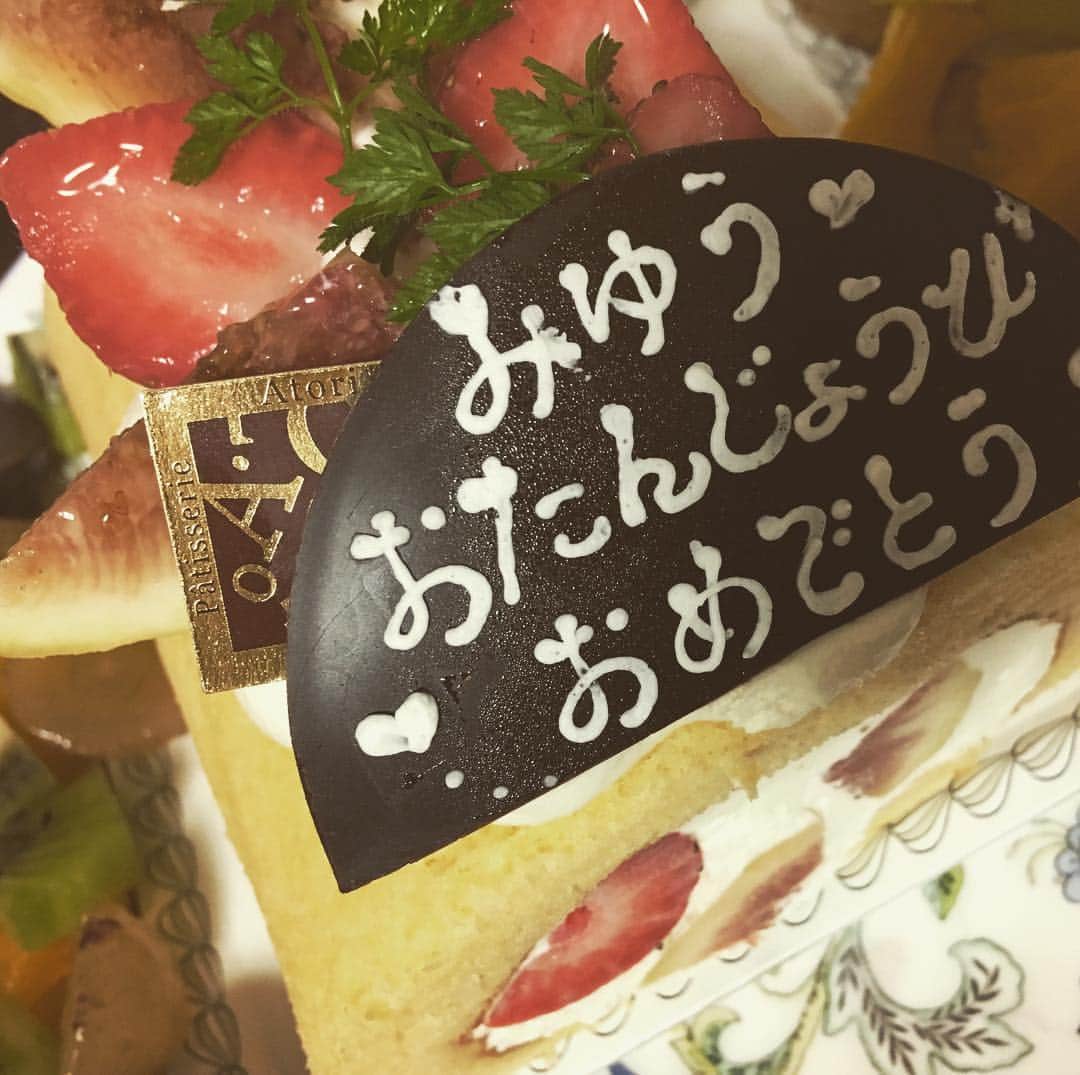 みゆう
おたんじょうび
おめでとう
Pâtisserie
Atori